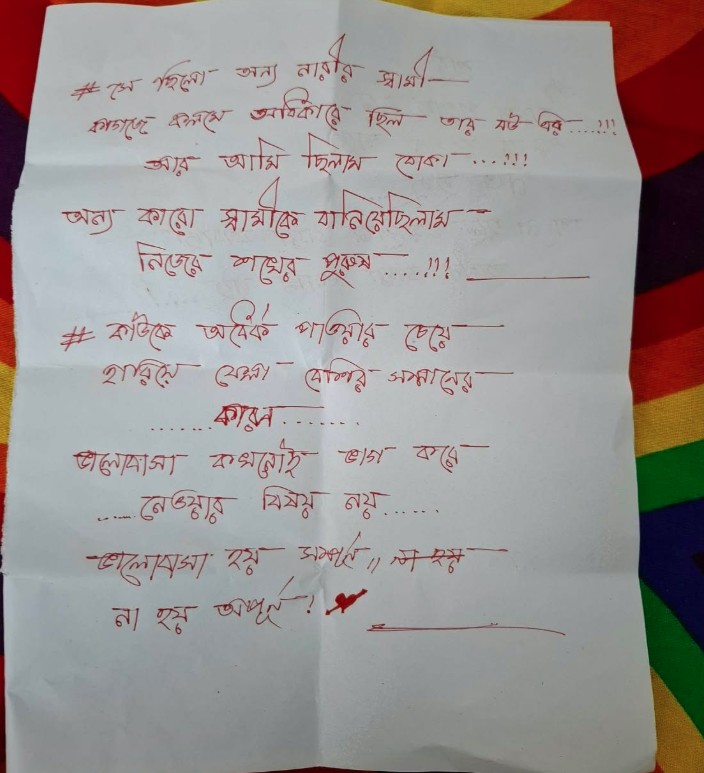 # সে ছিলো অন্য নারীর স্বামী
কাগজে কলমে অধিকারে ছিল তার বউ এর....!!!
আর আমি ছিলাম বোকা...!!!
অন্য কারো স্বামীকে বানিয়েছিলাম
নিজের শখের পুরুষ....!!!
# কাউকে অর্ধেক পাওয়ার চেয়ে
হারিয়ে ফেলা বেশির সম্মানের
.......কারন.......
ভালোবাসা কখনোই ভাগ করে
.....নেওয়ার বিষয় নয়......
ভালোবাসা হয় সম্পূর্ন,, না হয়
না হয় অপূর্ন !